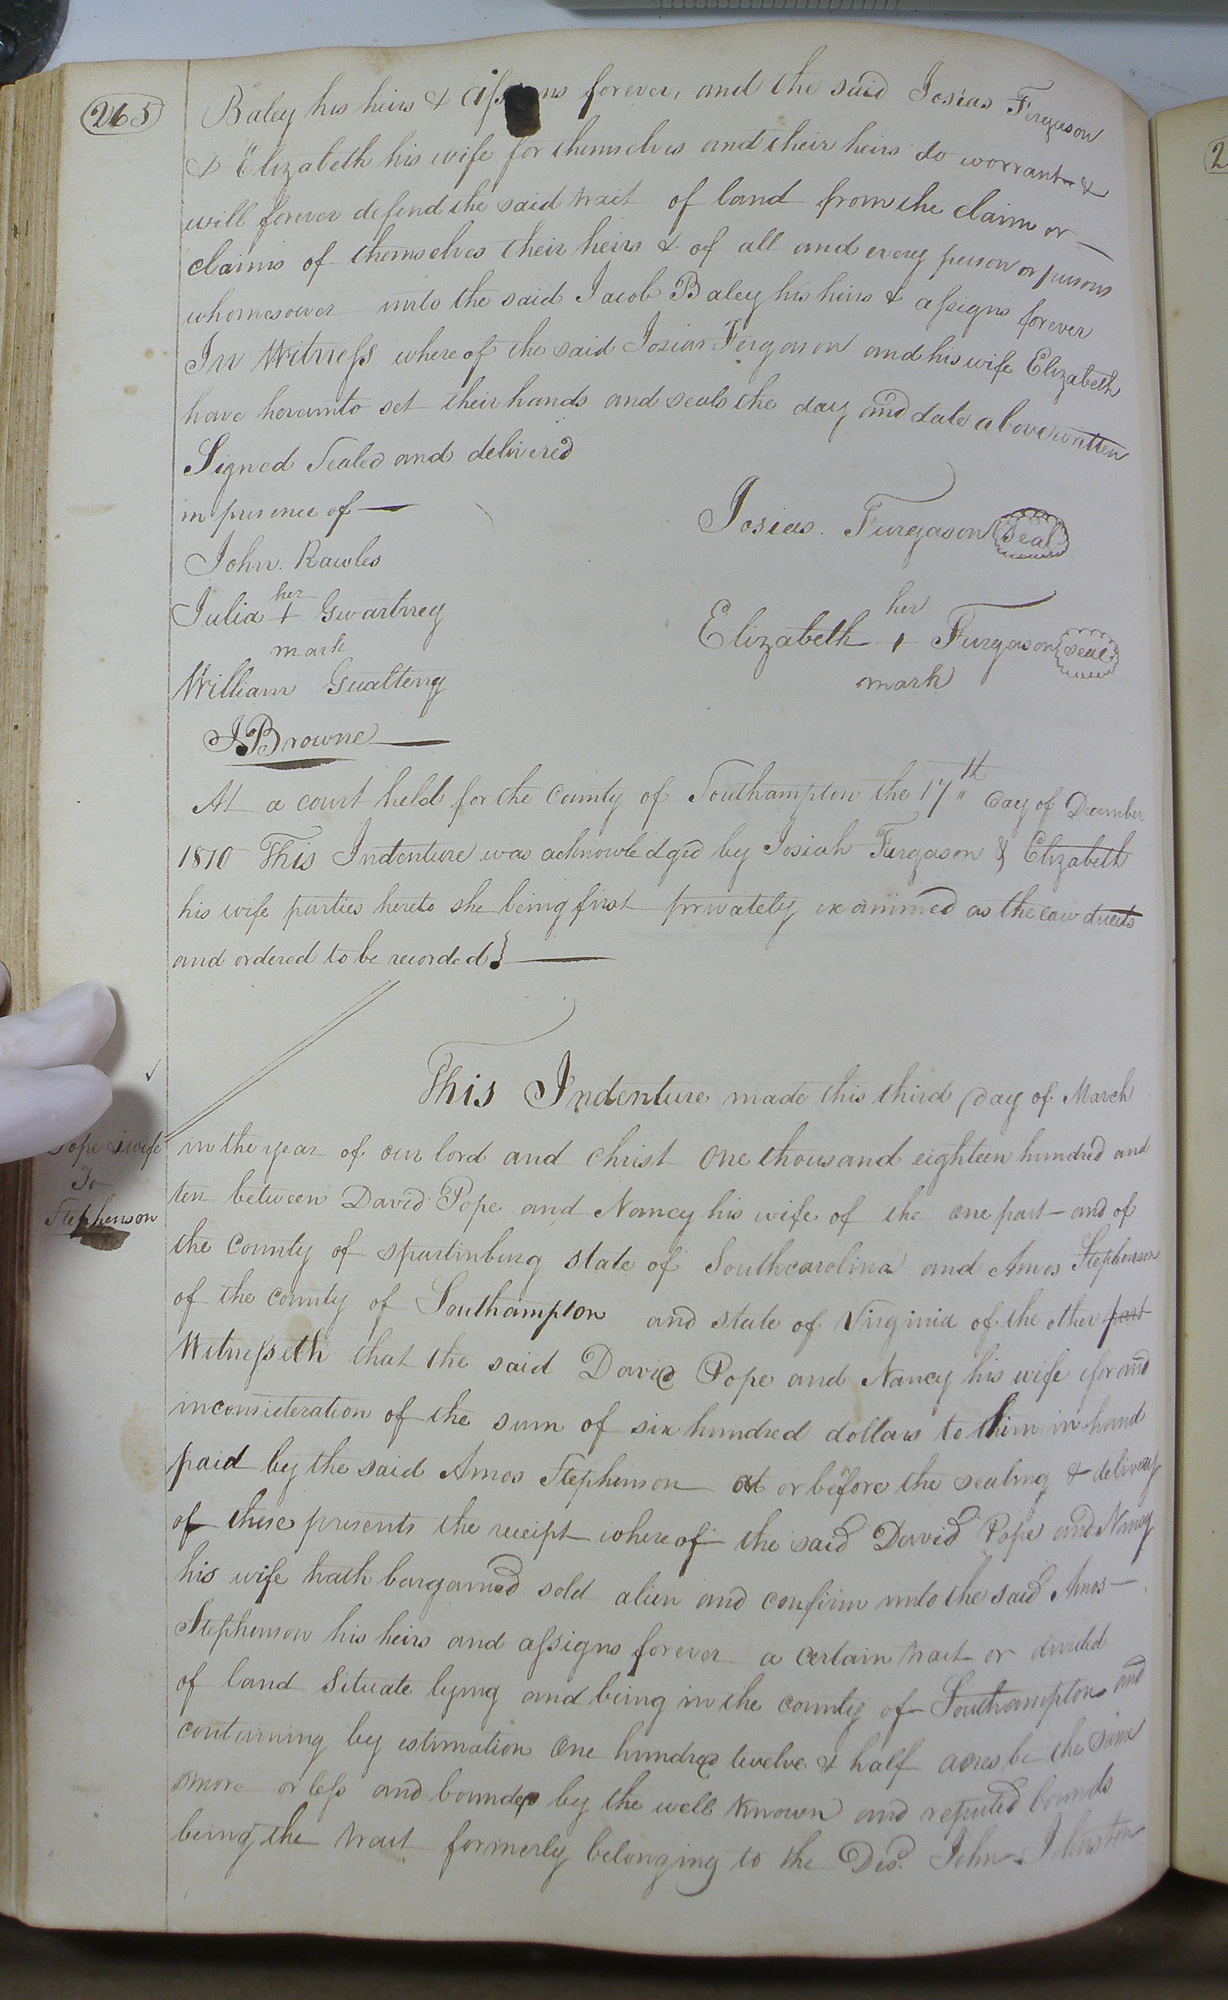 265
Baley his heirs & assigns forever, and the said Josias Fergason
& Elizabeth his wife for themselves and their heirs do worrant &
will forever defend the said tract of land from the claim or
claims of themselves their heirs & of all and every person or persons
whomesoever unto the said Jacob Baley his heirs & assigns forever
In Witness whereof the said Josias Fergason and his wife Elizabeth
have hereunto set their hands and seals the day and date above written
Signed Sealed and delivered
in presence of —
John Rawles
Julia her + mark Gwartney
William Gualteny
J Browne
Josias Furgason Seal
Elizabeth her + mark Furgason seal
At a court held for the County of Southampton the 17th day of December
1810 This Indenture was acknowledged by Josiah Furgason & Elizabeth
his wife parties hereto she being first privately examined as the law directs
and ordered to be recorded}
Pope & wife
To
Stephenson
This Indenture made this third day of March
in the year of our lord and christ One thousand eighteen hundred and
ten between David Pope and Nancy his wife of the one part and of
the County of Spartinburg state of Southcarolina and Amos Stephenson
of the county of Southampton and state of Virginia of the other part
Witnesseth that the said David Pope and Nancy his wife for and
inconsideration of the sum of six hundred dollars to them in hand
paid by the said Amos Stephenson at or before the sealing & delivery
of these presents the receipt whereof the said David Pope and Nancy
his wife hath bargained sold alien and confirm unto the said Amos
Stephenson his heirs and assigns forever a certain tract or divided
of land Situate lying and being in the county of Southampton and
containing by estimation One hundred twelve & half acres be the same
more or less and bounded by the well known and reputed bounds
being the tract formerly belonging to the Decd. John Johnston